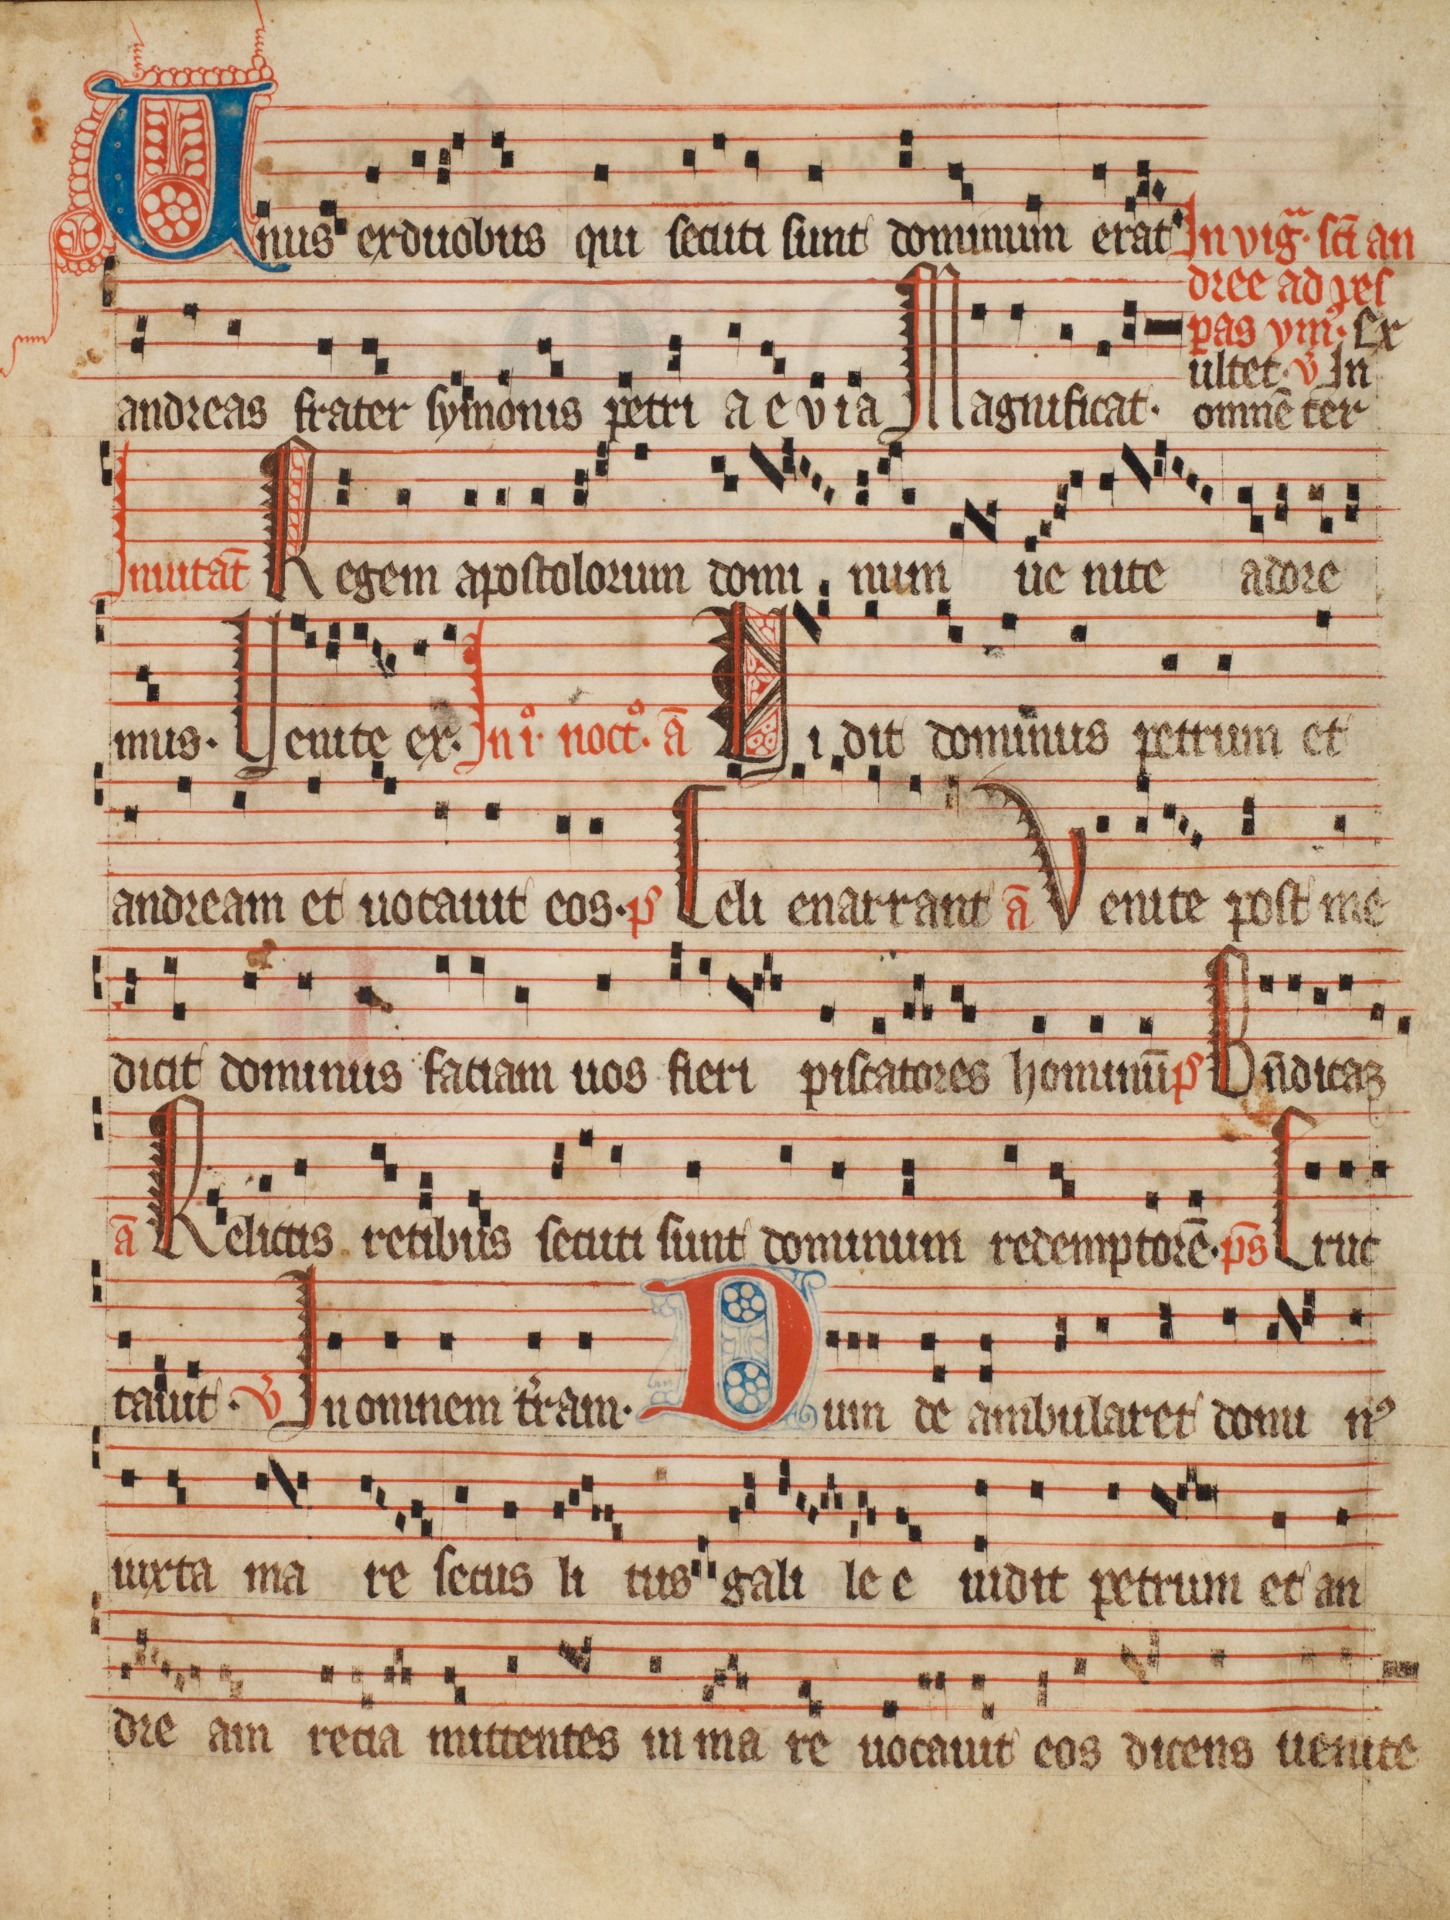 Unus ex duobus qui secuti sunt dominum erat In vig̃. sc̃i an
dree ad ves
peras ymº. Ex
ultet. V̄ In
omnẽ ter
andreas frater symonis petri a e v i a Magnificat.
Inuitat̄ Regem apostolorum domi num ue nite adore
mus. Venite ex. In iº. noctº. ā Vi dit dominus petrum et
andream et uocauit eos. ps Celi enarrant ā Venite post me
dicit dominus faciam uos fieri piscatores hominū ps Bñdicaꝫ
ā Relictis retibus secuti sunt dominum redemptorē. p̄s Eruc
tauit. V̄ In omnem t̄ram. Dum de ambularet domi nꝰ
iuxta ma re secus li tus gali le e uidit petrum et an
dre am retia mittentes in ma re uocauit eos dicens uenite